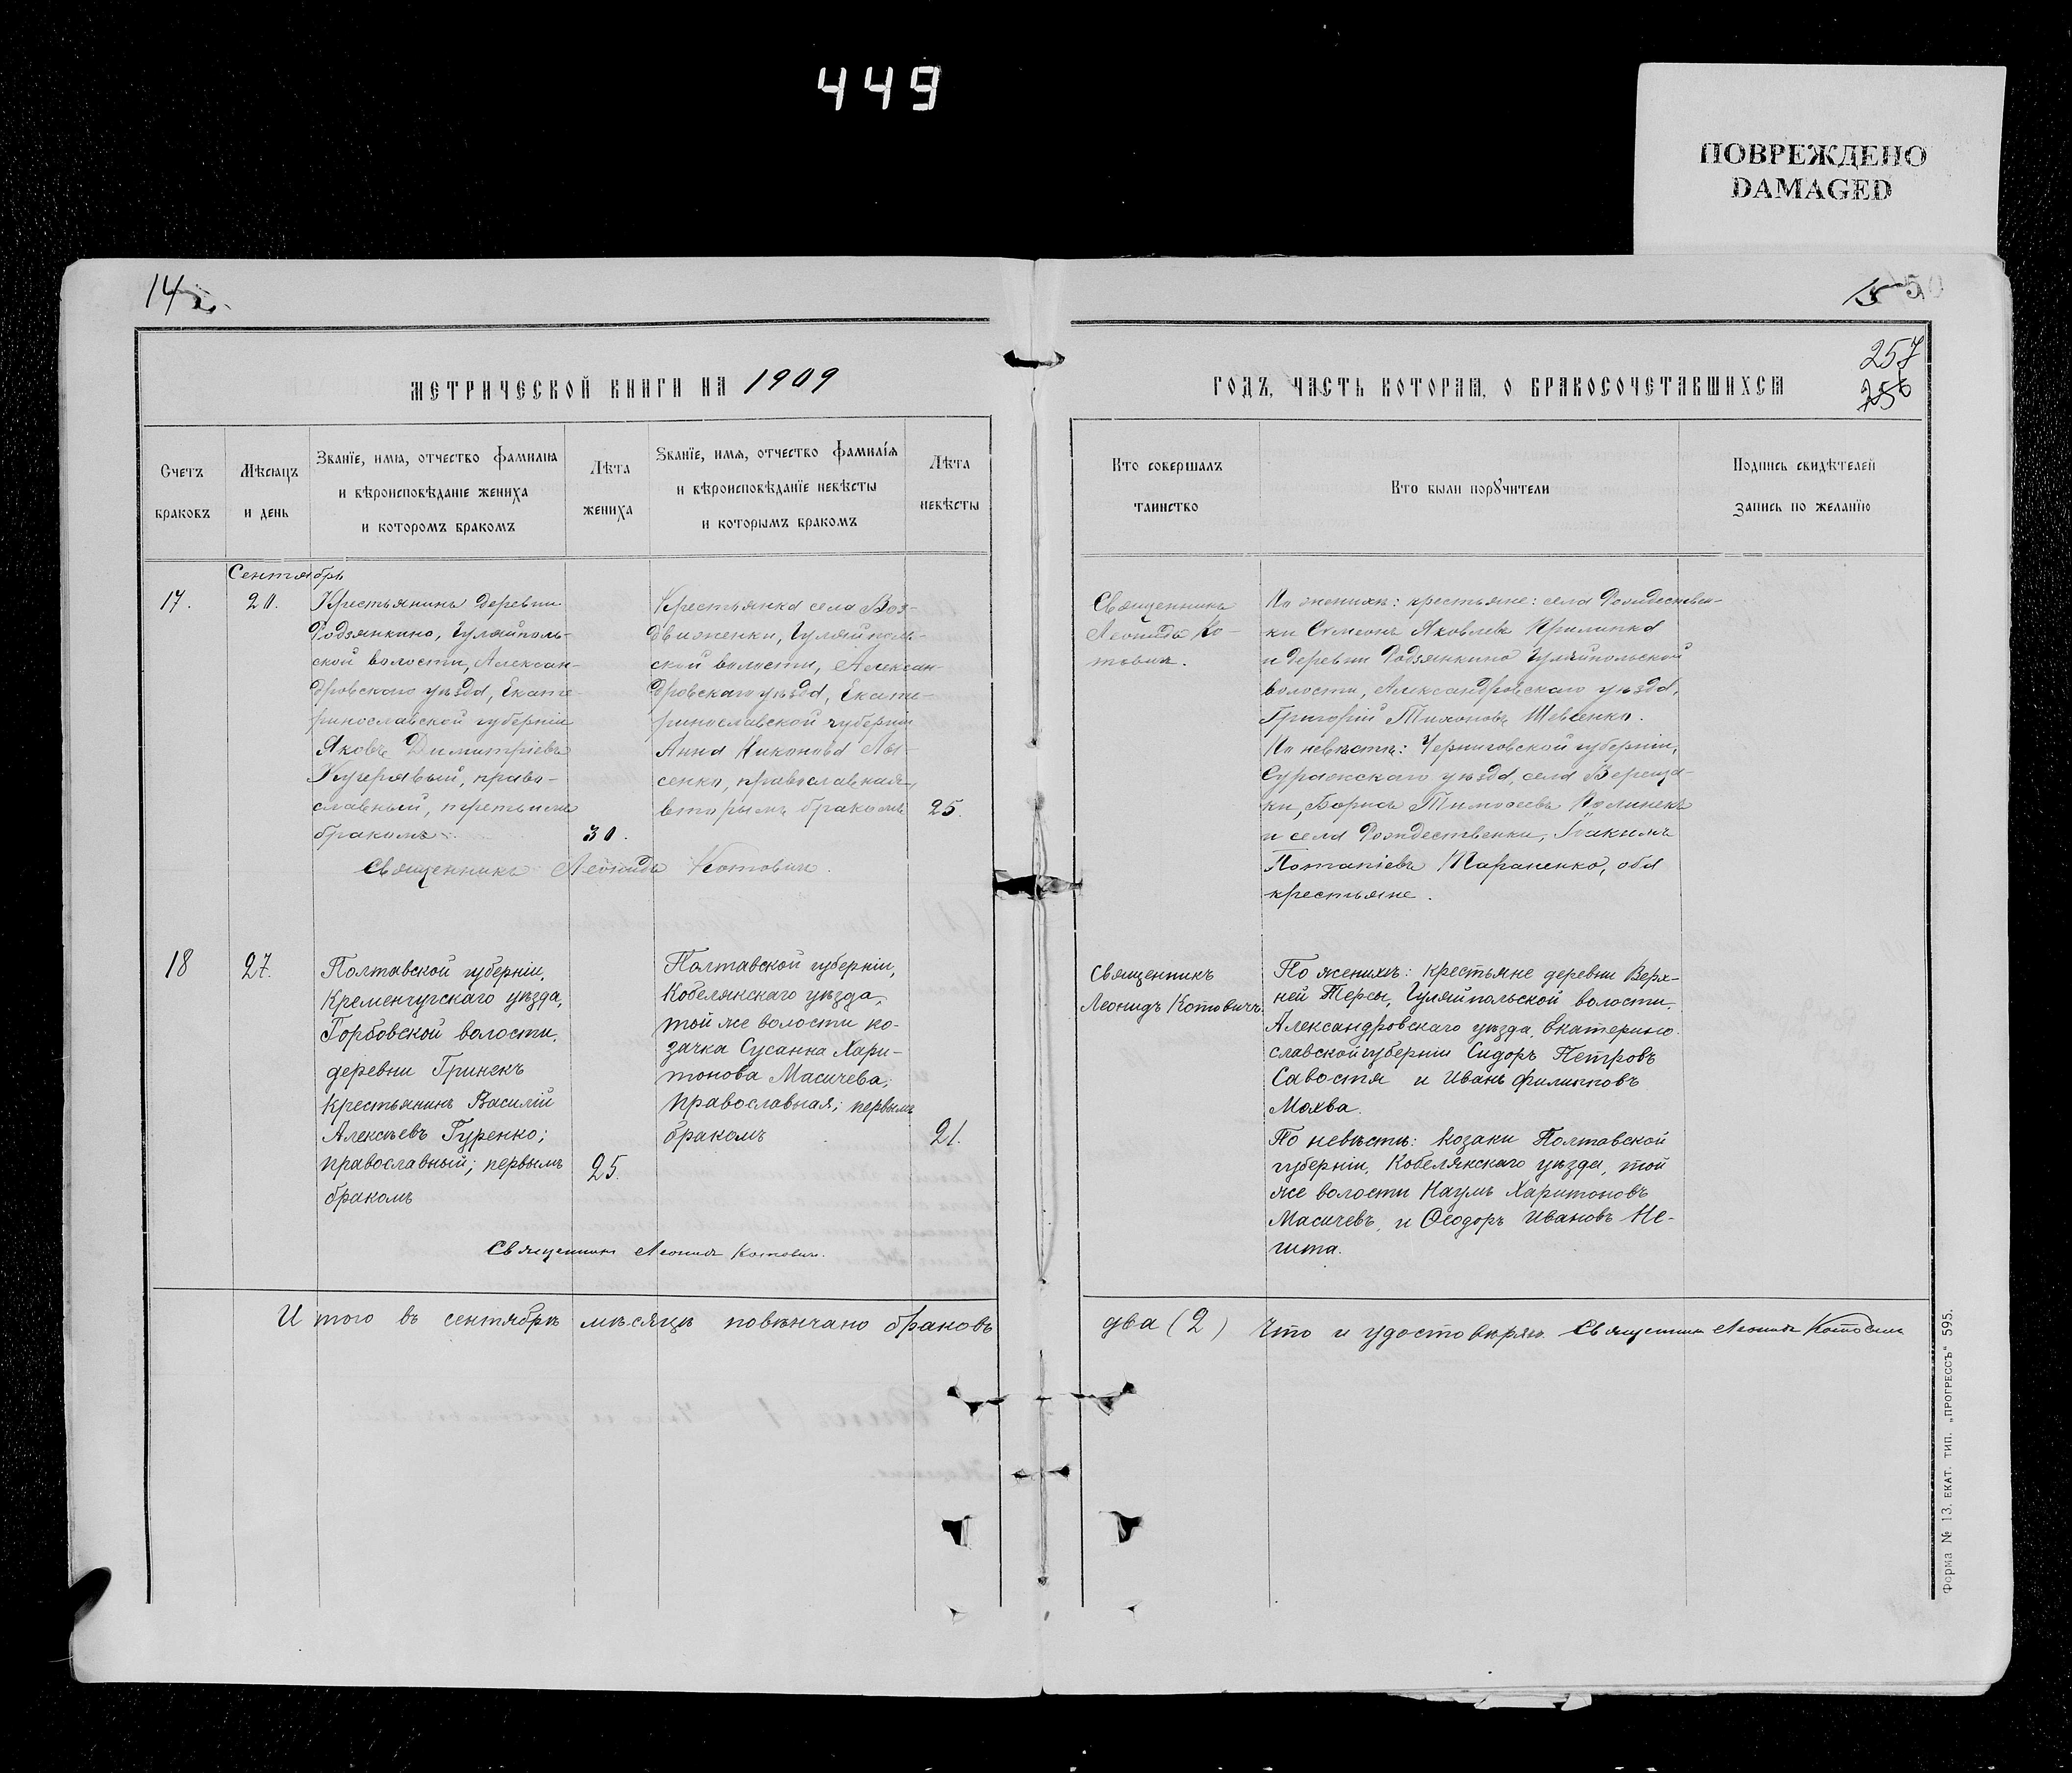 449
ПОВРЕЖДЕНО
DAMAGED
14
15 50
257
256
МЕТРИЧЕСКОЙ КНИГИ НА 1909
ГОДЪ, ЧАСТЬ ВТОРАЯ, О БРАКОСОЧЕТАВШИХСЯ
Счетъ
браковъ
Мѣсяцъ
и день
Званїе, имя, отчество фамилія
и вѣроисповѣданіе жениха
и которомъ бракомъ
Лѣта
жениха
Званїе, имя, отчество фамилїя
и вѣроисповѣданїе невѣсты
и которымъ бракомъ
Лѣта
невѣсты
Кто совершалъ
таинство
Кто были поручители
Подпись свидѣтелей
запись по желанїю
Сентябрь
17.
20.
Крестьянинъ деревни
Родзянкино, Гуляйполь-
ской волости, Алексан-
дровскаго уѣзда, Екате-
ринославской губерніи
Яковъ Димитріевъ
Кучерявый, право-
славный, третьимъ
бракомъ.
30.
Крестьянка села Воз-
движенки, Гуляйполь-
ской волости, Алексан-
дровскаго уѣзда, Екате-
ринославской губерніи
Анна Никонова Лы-
сенко, православная,
вторымъ бракомъ
25.
Священникъ Леонидъ Котовичъ.
Священникъ
Леонидъ Ко-
товичъ.
По женихѣ: крестьяне: села Рождественс-
ки Симеонъ Яковлевъ Прилипка
и деревни Родзянкино Гуляйпольской
волости, Александровскаго уѣзда,
Григорій Тихоновъ Шевченко.
По невѣстѣ: Черниговской губерніи,
Суражскаго уѣзда, села Вереща-
ки, Борисъ Тимоѳеевъ Полинекъ
и села Рождественки, Іакимъ
Потапіевъ Тараненко, оба
крестьяне.
18
27.
Полтавской губерніи,
Кременчугскаго уѣзда,
Горбовской волости,
деревни Гринекъ
крестьянинъ Василій
Алексѣевъ Гуренко;
православный; первымъ
бракомъ
25.
Полтавской губерніи,
Кобелякскаго уѣзда,
той же волости ко-
зачка Сусанна Хари-
тонова Масичева;
православная; первымъ
бракомъ
21.
Священникъ Леонидъ Котовичъ.
Священникъ
Леонидъ Котовичъ.
По женихѣ: крестьяне деревни Верх-
ней Терсы, Гуляйпольской волости,
Александровскаго уѣзда, Екатерино-
славской губерніи Сидоръ Петровъ
Савостя и Иванъ Филипповъ
Мохва.
По невѣстѣ: козаки Полтавской
губерніи, Кобелякскаго уѣзда, той
же волости Наумъ Харитоновъ
Масичевъ, и Ѳеодоръ Ивановъ Не-
чита.
Итого въ сентябрѣ мѣсяцѣ повѣнчано браковъ
два (2) Что и удостовѣряю Священникъ Леонидъ Котовичъ
Форма № 13. ЕКАТ. ТИП. „ПРОГРЕССЪ" 595.